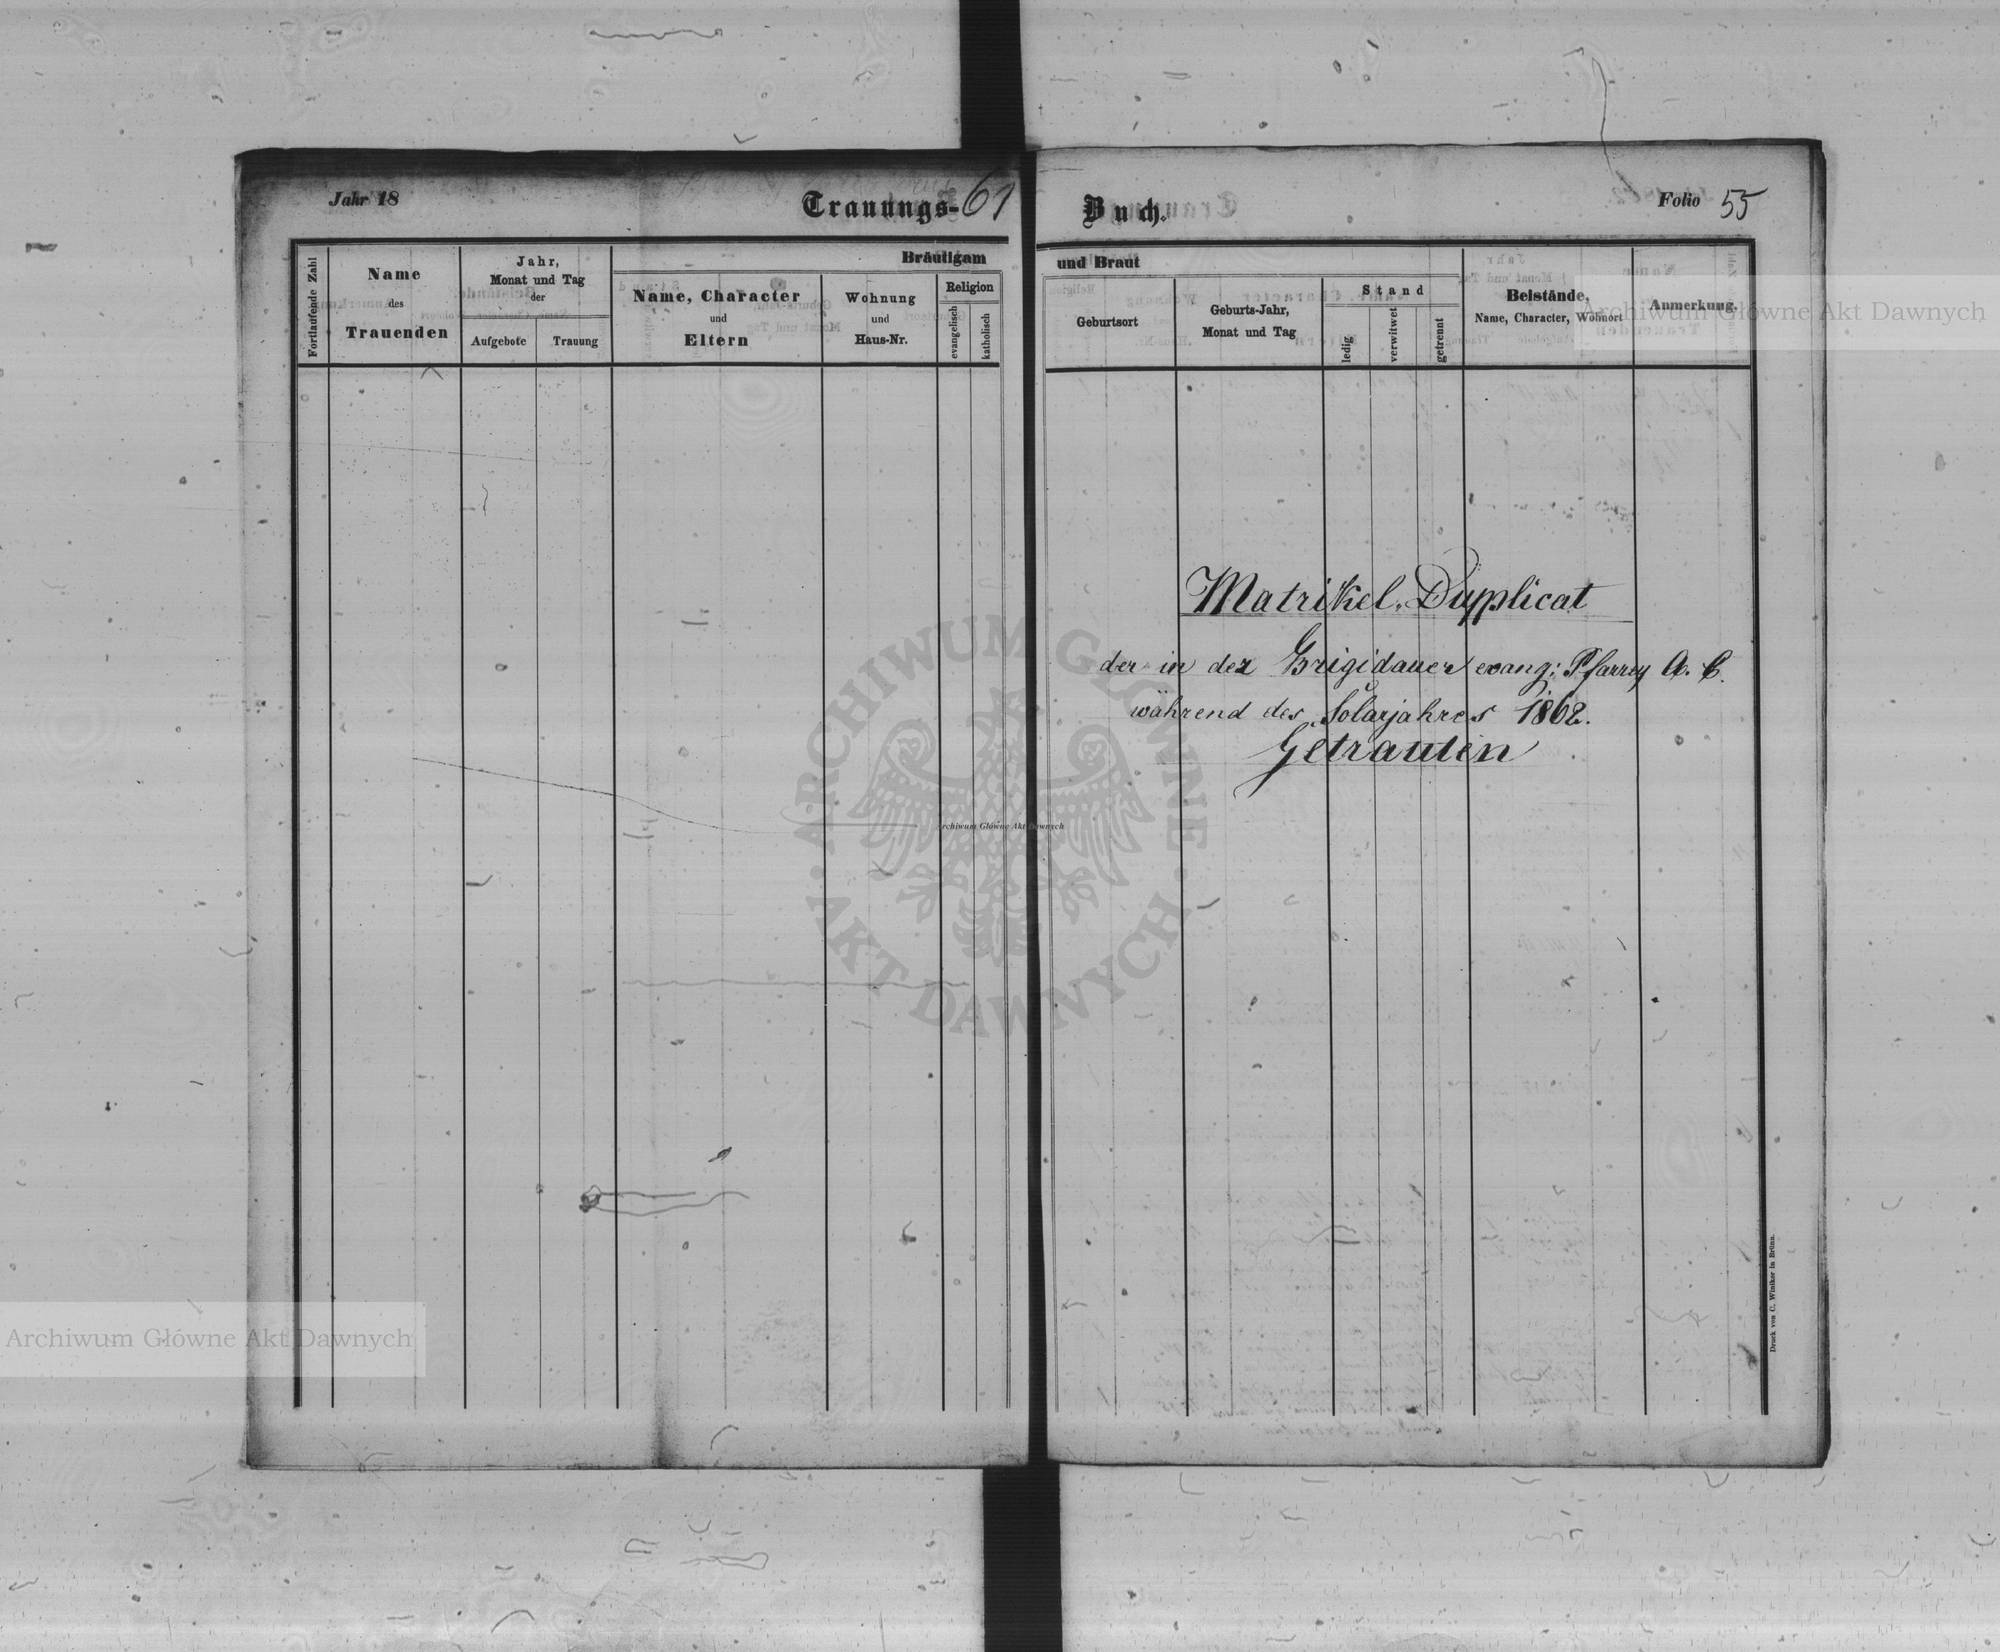 Jahr 18
Trauungs-
61
Fortlaufende Zahl
Name
des
Trauenden
Jahr,
Monat und Tag
der
Aufgebote
Trauung
Bräutigam
Name, Character
und
Eltern
Wohnung
und
Haus-Nr.
Religion
evangelisch
katholisch
Buch.
Folio 55
und Braut
Geburtsort
Geburts-Jahr,
Monat und Tag
Stand
ledig
verwitwet
getrennt
Beistände,
Name, Character, Wohnort
Anmerkung.
Archiwum Główne Akt Dawnych
Matrikel-Dupplicat
der in der Brigidauer evang: Pfarrey A. C.
während des Solarjahres 1862.
Getrauten
ARCHIWUM GŁÓWNE
AKT DAWNYCH
Archiwum Główne Akt Dawnych
Archiwum Główne Akt Dawnych
Druck von C. Winiker in Brünn.